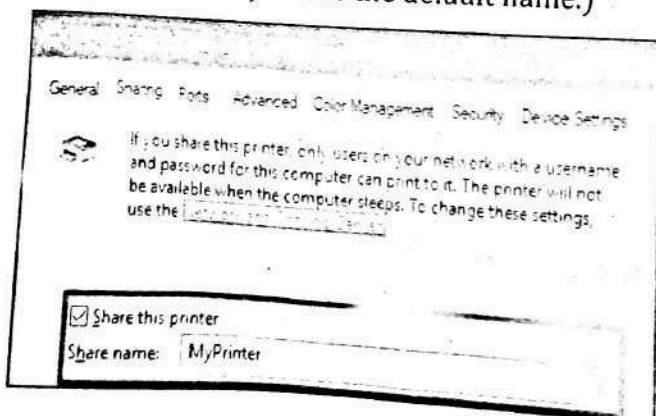 the default name.)
General Sharing Ports Advanced Color Management Security Device Settings
If you share this printer, only users on your network with a username
and password for this computer can print to it. The printer will not
be available when the computer sleeps. To change these settings,
use the
Share this printer
Share name: MyPrinter